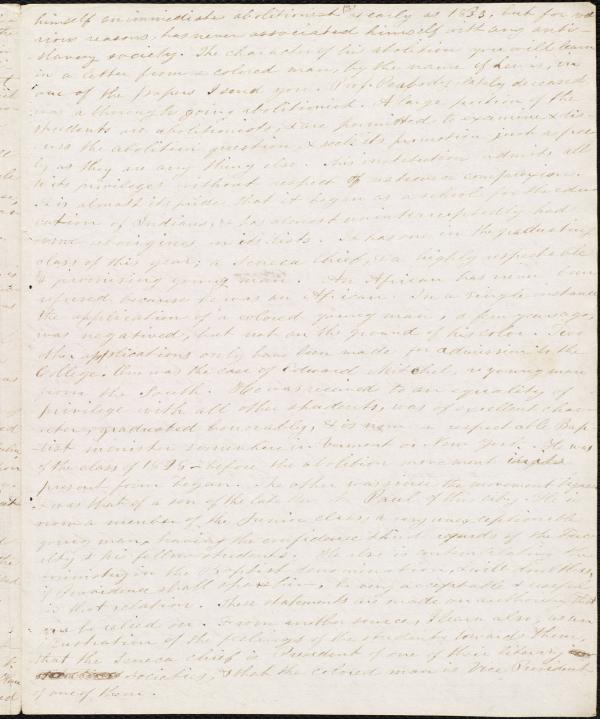 himself an immediate abolitionist as early as 1833, but for va-
rious reasons, has never associated himself with any anti-
slavery society. The character of his abolition you will learn
in a letter from a colored man, by the name of Lewis, in
one of the papers I send you. Prof. Peabody, lately deceased
was a thorough going abolitionist. A large portion of the
students are abolitionists, & are permitted to examine & dis-
cuss the abolition question, & seek its promotion, just as free-
ly as they are any thing else. This institution admits all
to its privileges without respect of nations or complexions.
It is almost its pride that it began as a school for the edu-
cation of Indians, & has almost uninterruptedly had
some aborigines in its lists. It has one in the graduating
class of this year; a Seneca chief, & a highly respectable
& promising young man. An African has never been
refused because he was an African. In a single instance
the application of a colored young man, a few years ago,
was negatived, but not on the ground of his color. Two
other applications only have been made for admission to the
College. One was the case of Edward Mitchel, a young man
from the South. He was received to an equality of
privilege with all other students, was of excellent char-
acter, graduated honourably, & is now a respectable Bap-
tist minister somewhere in Vermont or New York. He was
of the class of 1828 – before the abolition movement in its
present form began. The other was since the movement began
& was that of a son of the late Rev. Paul of this city. He is
now a member of the Junior class, a very unexceptionable
young man, having the confidence & kind regards of the Fac-
ulty & his fellow students. He also is contemplating the
ministry in the Baptist denomination, & will doubtless,
if Providence shall spare him, be very acceptable & useful
in that relation. These statements are made on authority that
may be relied on. From another source, I learn also, as an
illustration of the feelings of the students towards them,
that the Seneca chief is President of one of their literary
societies, & that the colored man is Vice President
of one of them.